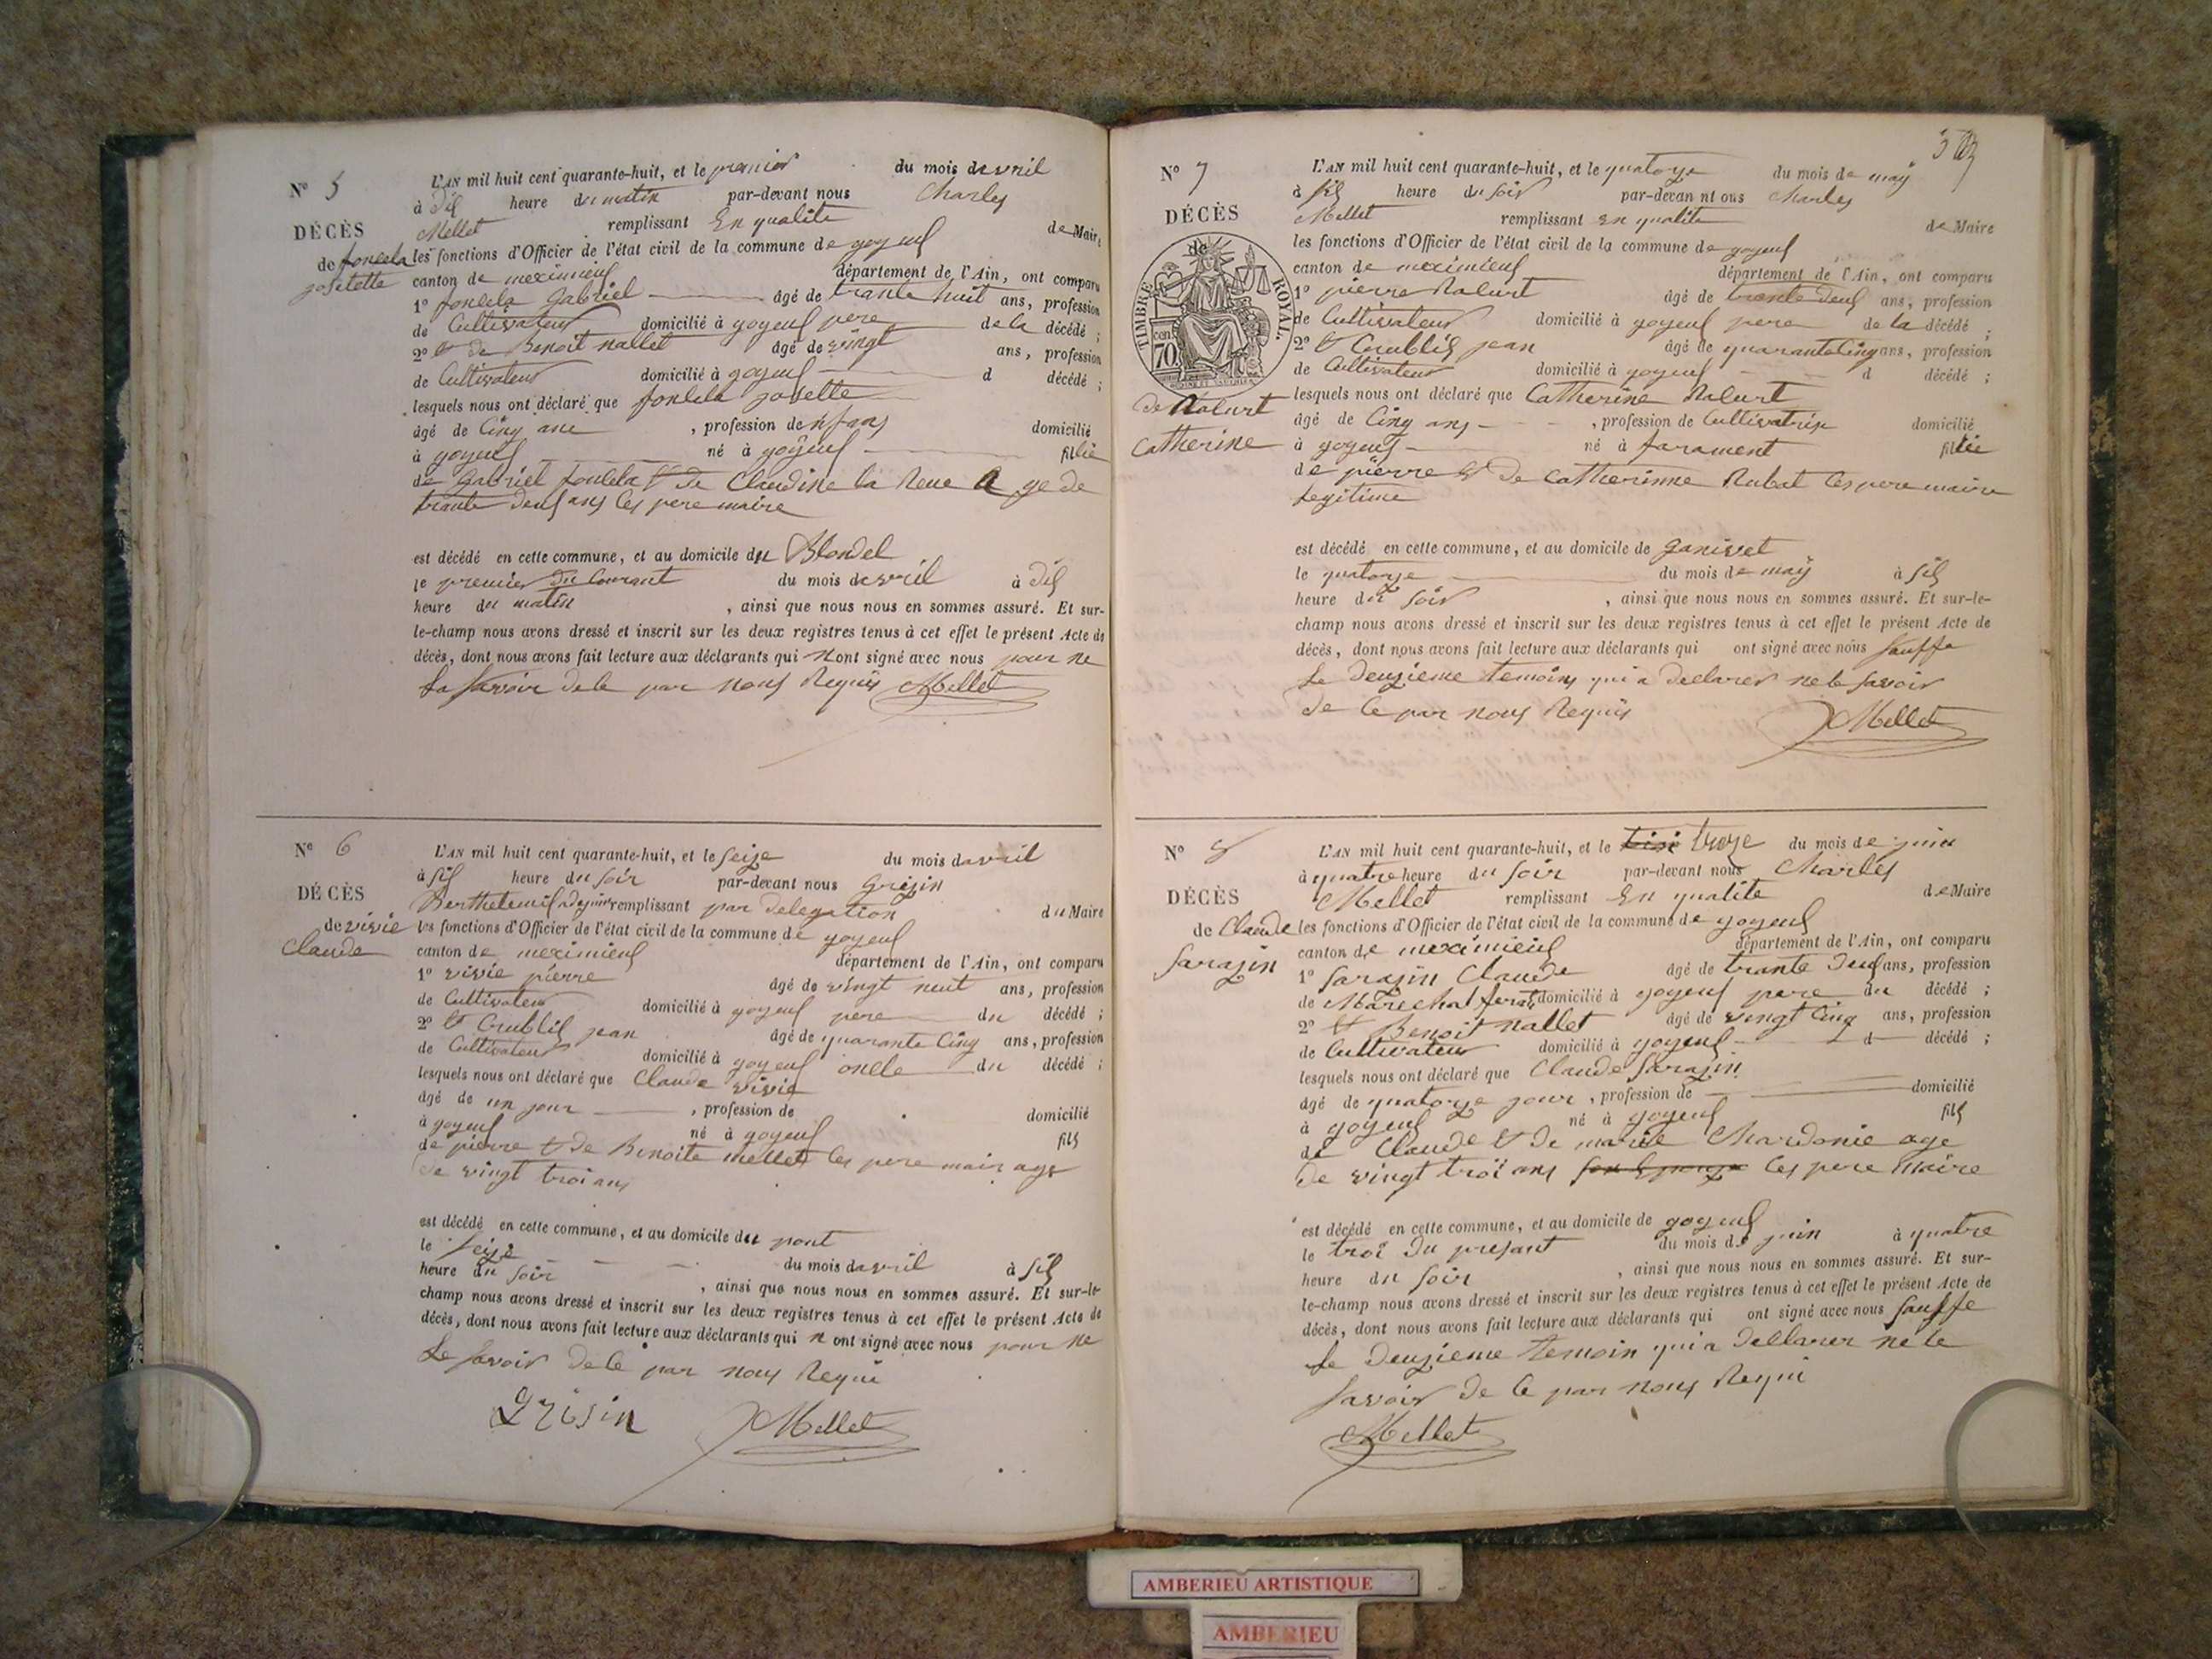 N° 5
DÉCÈS
de fonlela
josettette
L'AN mil huit cent quarante-huit, et le premier du mois davril
à dix heure du matin par-devant nous Charles
Mellet remplissant En qualite de Maire
les fonctions d'Officier de l'état civil de la commune de joyeux
canton de meximieux département de l'Ain, ont comparu
1° fonlela Gabriel âgé de trante huit ans, profession
de Cultivateur domicilié à joyeux pere de la décédé ;
2° & de Benoit nallet âgé de vingt ans, profession
de Cultivateur domicilié à joyeux d décédé ;
lesquels nous ont déclaré que fonlela josette
âgé de Cinq ans , profession de domicilié
à joyeux né à joyeux fille
de Gabriel fonlela & de Claudine la Reue age de
trante deux ans les pere maire
est décédé en cette commune, et au domicile du Blondel
le premier du Courant du mois davril à dix
heure du matin , ainsi que nous nous en sommes assuré. Et sur-
le-champ nous avons dressé et inscrit sur les deux registres tenus à cet effet le présent Acte de
décès, dont nous avons fait lecture aux déclarants qui n'ont signé avec nous pour ne
La Savoir de ce par nous Requis Mellet
N° 6
DÉCÈS
de vivie
Claude
L'AN mil huit cent quarante-huit, et le Seize du mois davril
à six heure du soir par-devant nous Grizin
Berthelemi adjoint remplissant par delegation du Maire
les fonctions d'Officier de l'état civil de la commune de joyeux
canton de meximieux département de l'Ain, ont comparu
1° vivie pierre âgé de vingt neuf ans, profession
de Cultivateur domicilié à joyeux pere du décédé ;
2° & Crublix jean âgé de quarante Cinq ans, profession
de Cultivateur domicilié à joyeux oncle du décédé ;
lesquels nous ont déclaré que Claude vivie
âgé de un jour , profession de domicilié
à joyeux né à joyeux fils
de pierre & de Benoite mellet les pere mair age
de vingt troi ans
est décédé en cette commune, et au domicile du pont
le Seize du mois davril à six
heure du soir , ainsi que nous nous en sommes assuré. Et sur-le-
champ nous avons dressé et inscrit sur les deux registres tenus à cet effet le présent Acte de
décès, dont nous avons fait lecture aux déclarants qui n ont signé avec nous pour ne
Le Savoir de ce par nous Requi
Grisin Mellet
N° 7
DÉCÈS
de
TIMBRE ROYAL.
cen. 70
de Nalurt
Catherine
L'AN mil huit cent quarante-huit, et le quatorze du mois de may
à six heure du soir par-devan nt ous Charles
Mellet remplissant En qualite de Maire
les fonctions d'Officier de l'état civil de la commune de joyeux
canton de meximieux département de l'Ain, ont comparu
1° pierre Nalurt âgé de trante deux ans, profession
de Cultivateur domicilié à joyeux pere de la décédé ;
2° & Crublix jean âgé de quarante Cinq ans, profession
de Cultivateur domicilié à joyeux d décédé ;
lesquels nous ont déclaré que Catherine Nalurt
âgé de Cinq ans , profession de Cultivatrix domicilié
à joyeux né à faramant fille
de pierre & de Catherinne Rubat les pere maire
legitime
est décédé en cette commune, et au domicile de Ganivet
le quatorze du mois de may à six
heure du soir , ainsi que nous nous en sommes assuré. Et sur-le-
champ nous avons dressé et inscrit sur les deux registres tenus à cet effet le présent Acte de
décès, dont nous avons fait lecture aux déclarants qui ont signé avec nous Sauffe
Le deuzieme temoins qui a declarer ne le savoir
de ce par nous Requis
Mellet
N° 8
DÉCÈS
de Claude
Sarazin
L'AN mil huit cent quarante-huit, et le troze du mois de juin
à quatre heure du soir par-devant nous Charles
Mellet remplissant En qualite de Maire
les fonctions d'Officier de l'état civil de la commune de joyeux
canton de meximieux département de l'Ain, ont comparu
1° Sarazin Claude âgé de trante deux ans, profession
de Marechal ferat domicilié à joyeux pere du décédé ;
2° & Benoit nallet âgé de vingt Cinq ans, profession
de Cultivateur domicilié à joyeux d décédé ;
lesquels nous ont déclaré que Claude Sarazin
âgé de quatorze jour , profession de domicilié
à joyeux né à joyeux fils
de Claude & de marie Chardonie age
de vingt troi ans les pere Maire
est décédé en cette commune, et au domicile de joyeux
le troi du presant du mois de juin à quatre
heure du soir , ainsi que nous nous en sommes assuré. Et sur-
le-champ nous avons dressé et inscrit sur les deux registres tenus à cet effet le présent Acte de
décès, dont nous avons fait lecture aux déclarants qui ont signé avec nous Sauffe
Le deuzieme temoin qui a dellarer ne le
Savoir de ce par nous Requi
Mellet
AMBERIEU ARTISTIQUE
AMBERIEU